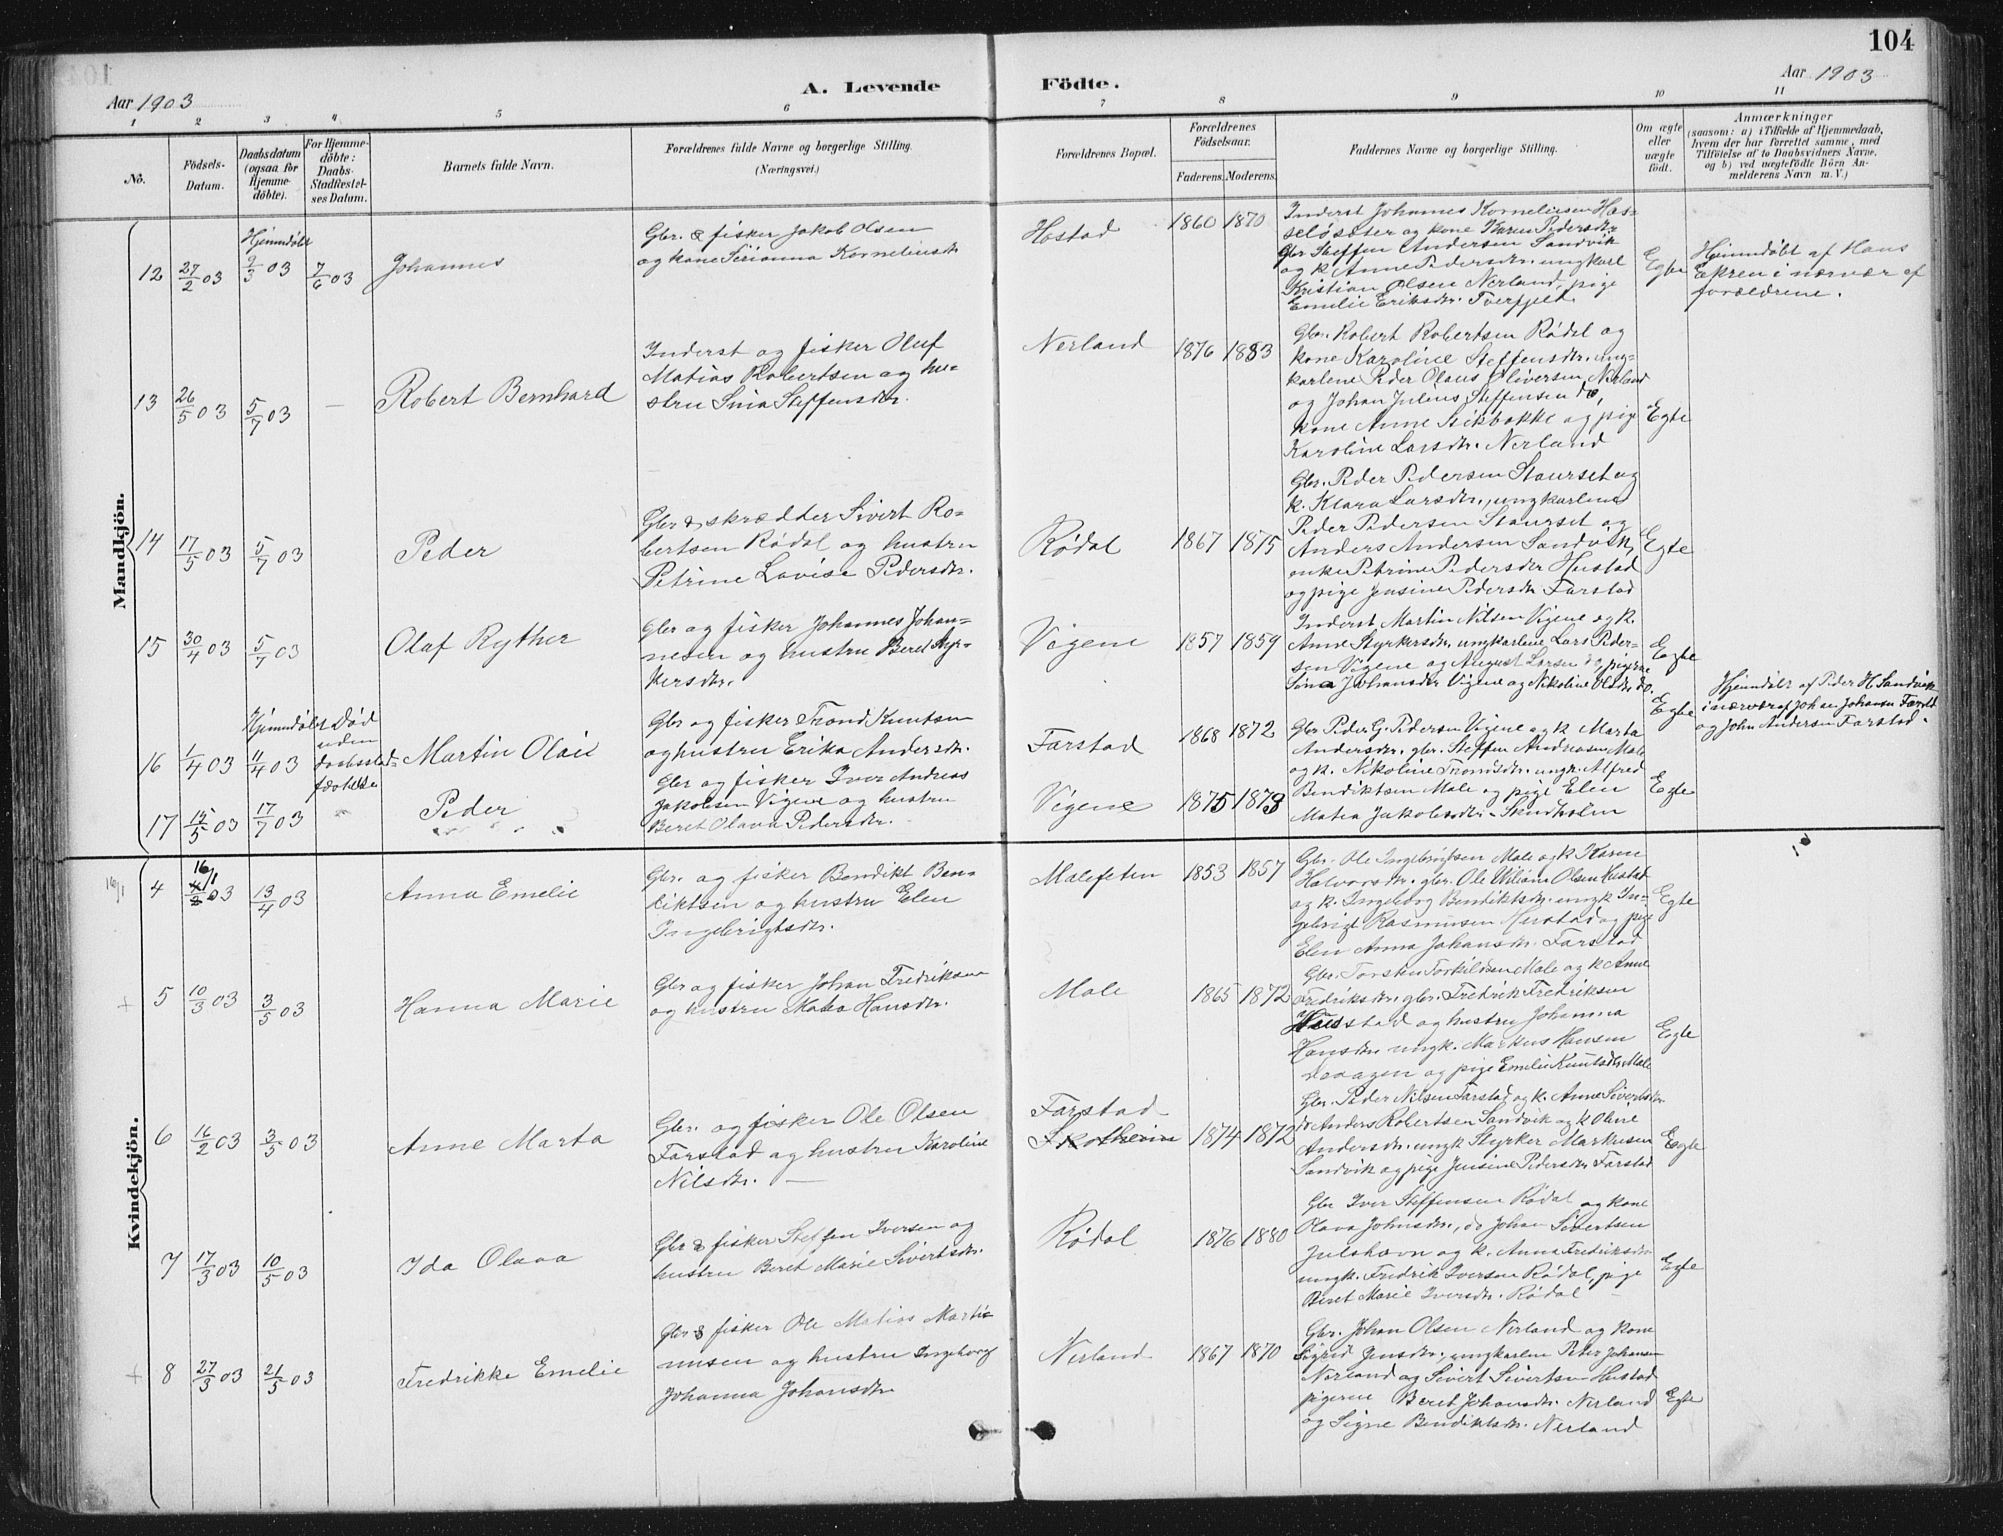 104
Aar 1903
A. Levende Födte.
Aar 1903
1 2 3 4 5 6 7 8 9 10 11
No.
Födsels-
Datum.
Daabsdatum
(ogsaa for
Hjemme-
döbte).
For Hjemme-
döbte:
Daabs-
Stadfæstel-
ses Datum.
Barnets fulde Navn.
Forældrenes fulde Navne og borgerlige Stilling.
(Næringsvei.)
Forældrenes Bopæl.
Forældrenes
Födselsaar.
Faderens. Moderens.
Faddernes Navne og borgerlige Stilling.
Om ægte
eller
uægte
født.
Anmærkninger
(saasom: a) i Tilfælde af Hjemmedaab,
hvem der har forrettet samme, med
Tilföielse af to Daabsvidners Navne,
og b) ved uægtefödte Börn An-
melderens Navn m. V.)
Mandkjön.
12 27/2 03
Hjemmdøbt
9/3 03
7/6 03
Johannes
Gbr. & fisker Jakob Olsen
og kone Serianna Kornelius dr
Hostad
1860 1870
Inderst Johannes Korneliussen Has-
seløsæter og kone Karen Pedersdr.
Gbr Steffen Andersen Sandvik
og k. Anne Pedersdr. ungkarl
Kristian Olsen Nerland, pige
Emelie Eriksdr. Tverfjeld
Egte
Hjemmdøbt af Hans
Ekren i nærvær af
forældrene.
13 26/5 03
5/7 03
–
Robert Bernhard
Inderst og fisker Oluf
Matias Robertsen og hu-
stru Sina Steffensdr.
Nerland
1876 1883
Gbr. Robert Robertsen Rødal og
kone Karoline Steffensdr. ung-
karlene Peder Olaus Oliversen Nerland
og Johan Julius Steffensen do,
kone Anne Stikbakke og pige
Karoline Larsdr. Nerland
Egte
14 17/5 03
5/7 03
Peder
Gbr & skrædder Sivert Ro-
bertsen Rødal og hustru
Petrine Lovise Pedersdr.
Rødal
1867 1875
Gbr. Peder Pedersen Staurset og
k. Klara Larsdr., ungkarlene
Peder Pedersen Staurset og
Anders Andersen Sandvik,
enke Petrine Pedersdr Hustad
og pige Jensine Pedersdr Farstad
Egte
15 30/4 03
5/7 03
Olaf Ryther
Gbr og fisker Johannes Johan-
nesen og hustru Beret Styr-
kersdr.
Vigene
1857 1859
Inderst Martin Nilsen Vigene og k.
Anne Styrkersdr. ungkarlene Lars Peder-
sen Vigene og August Larsen do, pigerne
Sina Johansdr Vigene og Nikoline Olsdr do.
Egte
16 1/4 03
Hjemmdøbt
11/4 03
Død
uden
daabsstad-
fæstelse
Martin Olai
Gbr og fisker Trond Knutsen
og hustru Erika Andersdr.
Farstad
1868 1872
Gbr Peder G. Pedersen Vigene og k Marta
Andersdr. gbr. Steffen Andreasen Male
og k. Nikoline Tronds dr. ungk. Alfred
Bendiktsen Male og pige Elen
Matea Jakobsdr. Skindholen
Egte
Hjemdøbt af Peder H. Sandvik
i nærvær af Johan Johansen Farstad
og John Andersen Farstad.
17 15/5 03
17/7 03
Peder
Gbr og fisker Iver Andreas
Jakobsen Vigene og hustru
Beret Olava Pedersdr.
Vigene
1875 1873
Egte
Kvindekjön.
16/1
4 16/1 4/2 03
13/4 03
Anna Emelie
Gbr. og fisker Bendikt Ben-
diktsen og hustru Elen
Ingebrigtsdr.
Malefeten
1853 1857
Gbr. Ole Ingebrigtsen Male og k Karen
Halvorsdr. gbr. Ole Uiliam Olsen Hustad
og k. Ingeborg Bendiktsdr. ungk In-
gebrigt Rasmussen Herstad og pige
Elen Anna Johansdr. Farstad
Egte
+ 5 10/3 03
3/5 03
Hanna Marie
Gbr og fisker Johan Fredriksen
og hustru Matea Hansdr.
Male
1865 1872
Gbr. Torsten Torkildsen Male og k Anne
Fredriksdr. gbr. Fredrik Fredriksen
Hustad og hustru Johanna
Hansdr. ungk. Markus Hansen
og pige Emelie Knutsdr. Male
Egte
6 16/2 03
3/5 03
Anne Marta
Gbr. og fisker Ole Olsen
Farstad og hustru Karoline
Nilsdr. –
Farstad
Skotheim
1874 1872
Gbr. Peder Nilsen Farstad og k. Anne Sivertsdr
do Anders Robertsen Sandvik og k Oline
Andersdr. ungk Styrker Markusen
Sandvik og pige Jensine Pedersdr Farstad
Egte
7 17/3 03
10/5 03
Ida Olava
Gbr & fisker Steffen Iversen og
hustru Beret Marie Sivertsdr.
Rødal
1876 1880
Gbr Iver Steffensen Rødal og kone
Olava Johnsdr., do Johan Sivertsen
Julshavn og k. Anna Fredriksdr
ungk. Fredrik Iversen Rødal, pige
Beret Marie Iversdr. Rødal
Egte
+ 8 27/3 03
21/5 03
Fredrikke Emelie
Gbr & fisker Ole Matias Marti-
nusen og hustru Ingeborg
Johanna Johansdr
Nerland
1867 1870
Gbr. Johan Olsen Nerland og kone
Sigrid Jensdr., ungkarlene Peter Johansen
Nerland og Sivert Sivertsen Hustad
pigerne Beret Johansdr. Nerland
og Signe Bendiktsdr. Nerland
Egte